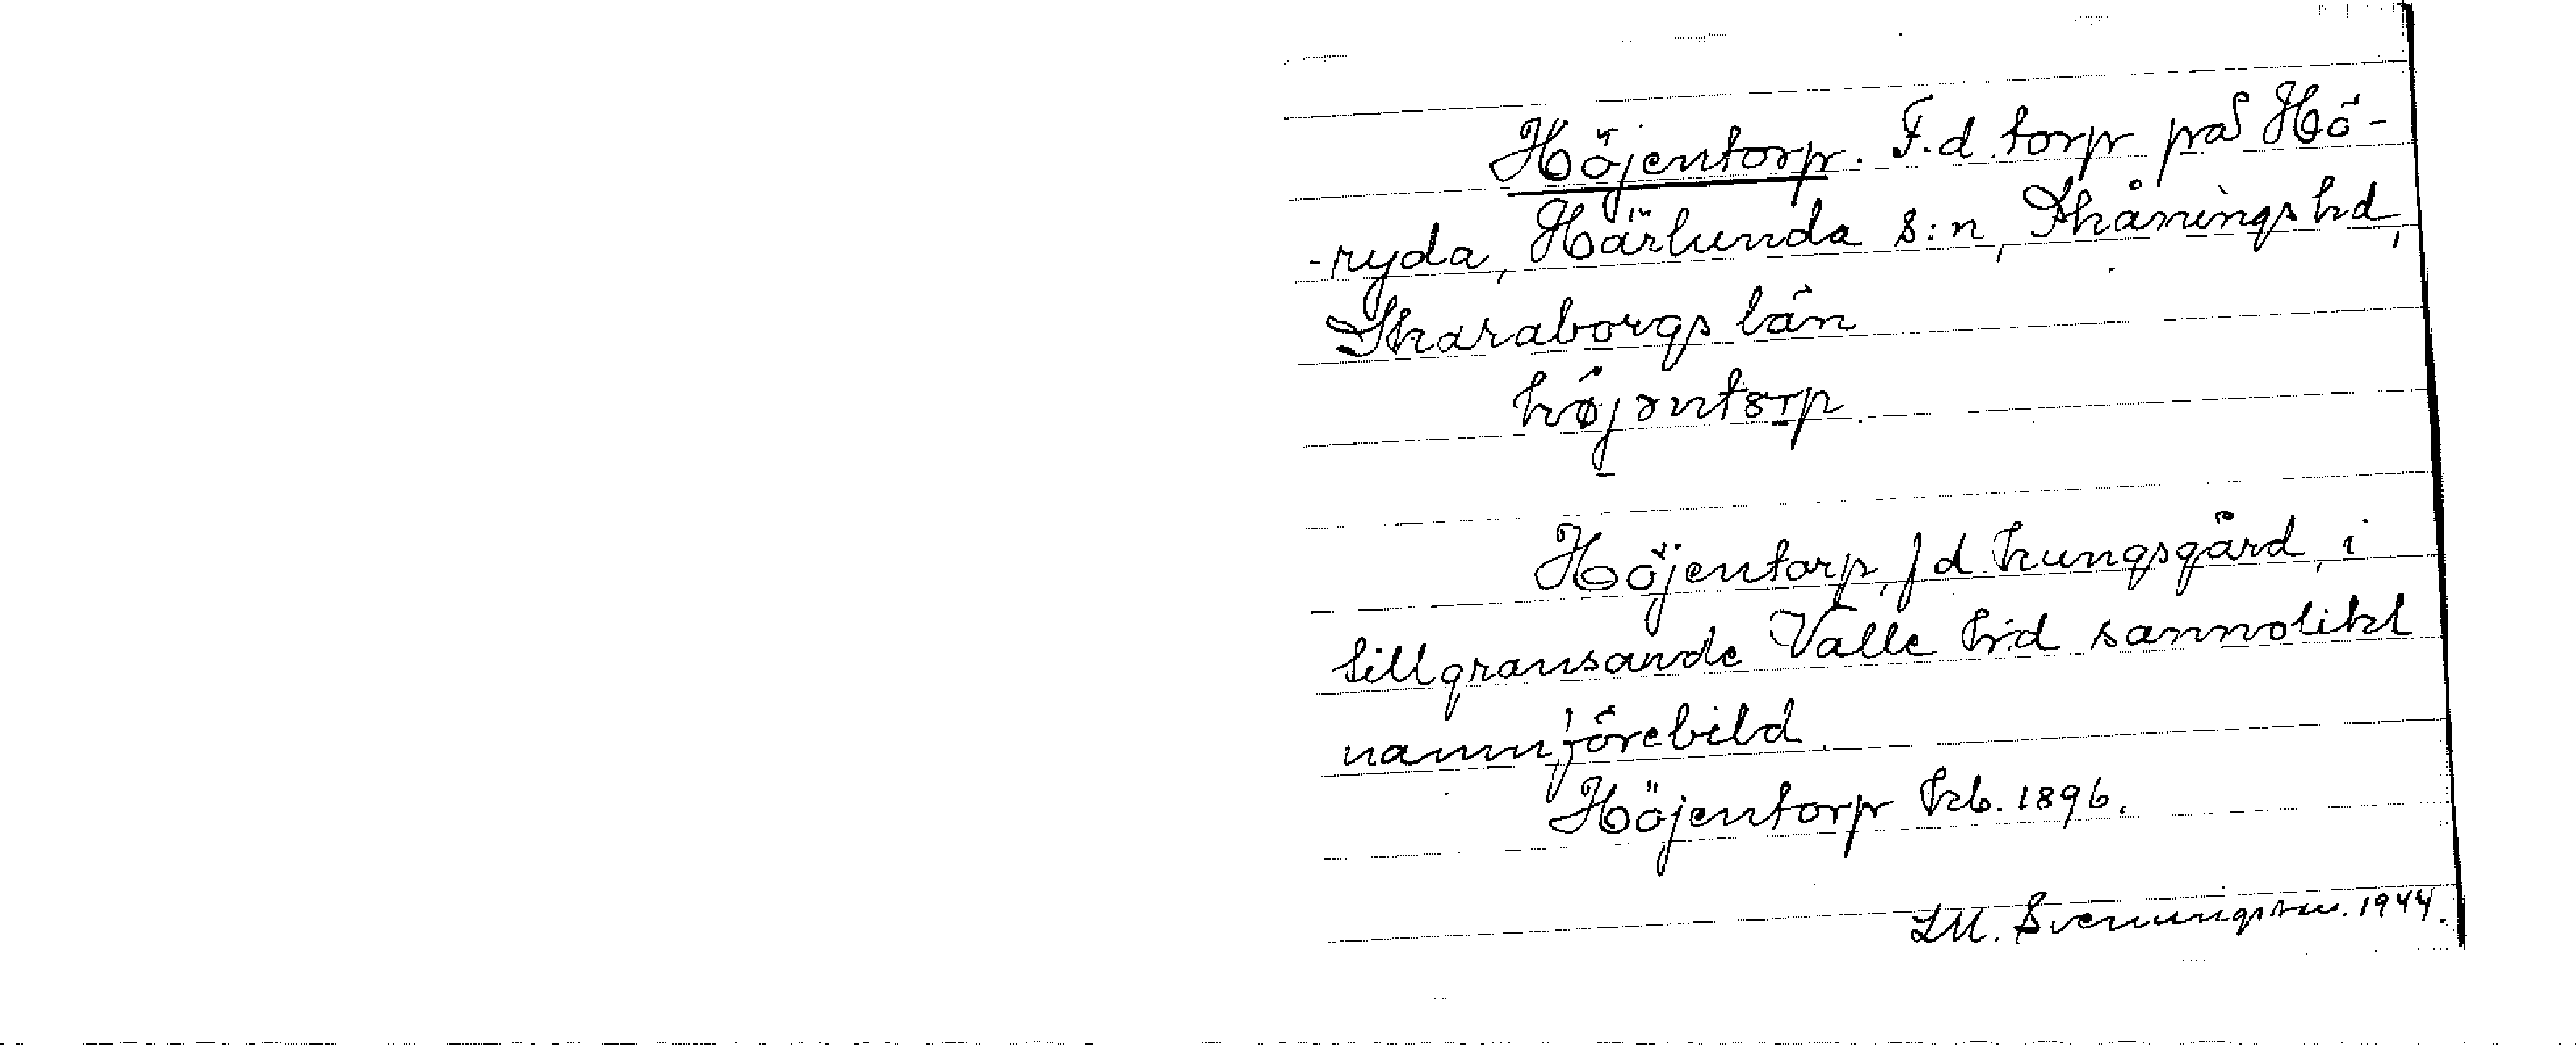 Höjentorp. F.d. torp på Hö-
-ryda, Härlunda s:n, Skånings hd,
Skaraborgs län
Höjentorp, f d kungsgård, i
tillgränsande Valle h:d sannolikt
namnförebild.
Höjentorp kb. 1896.
LM. Svenungsson. 1944.